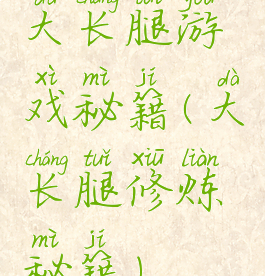 dà cháng tuǐ yóu
大长腿游
xì mì jí dà
戏秘籍(大
cháng tuǐ xiū liàn
长腿修炼
mì jí
秘籍)